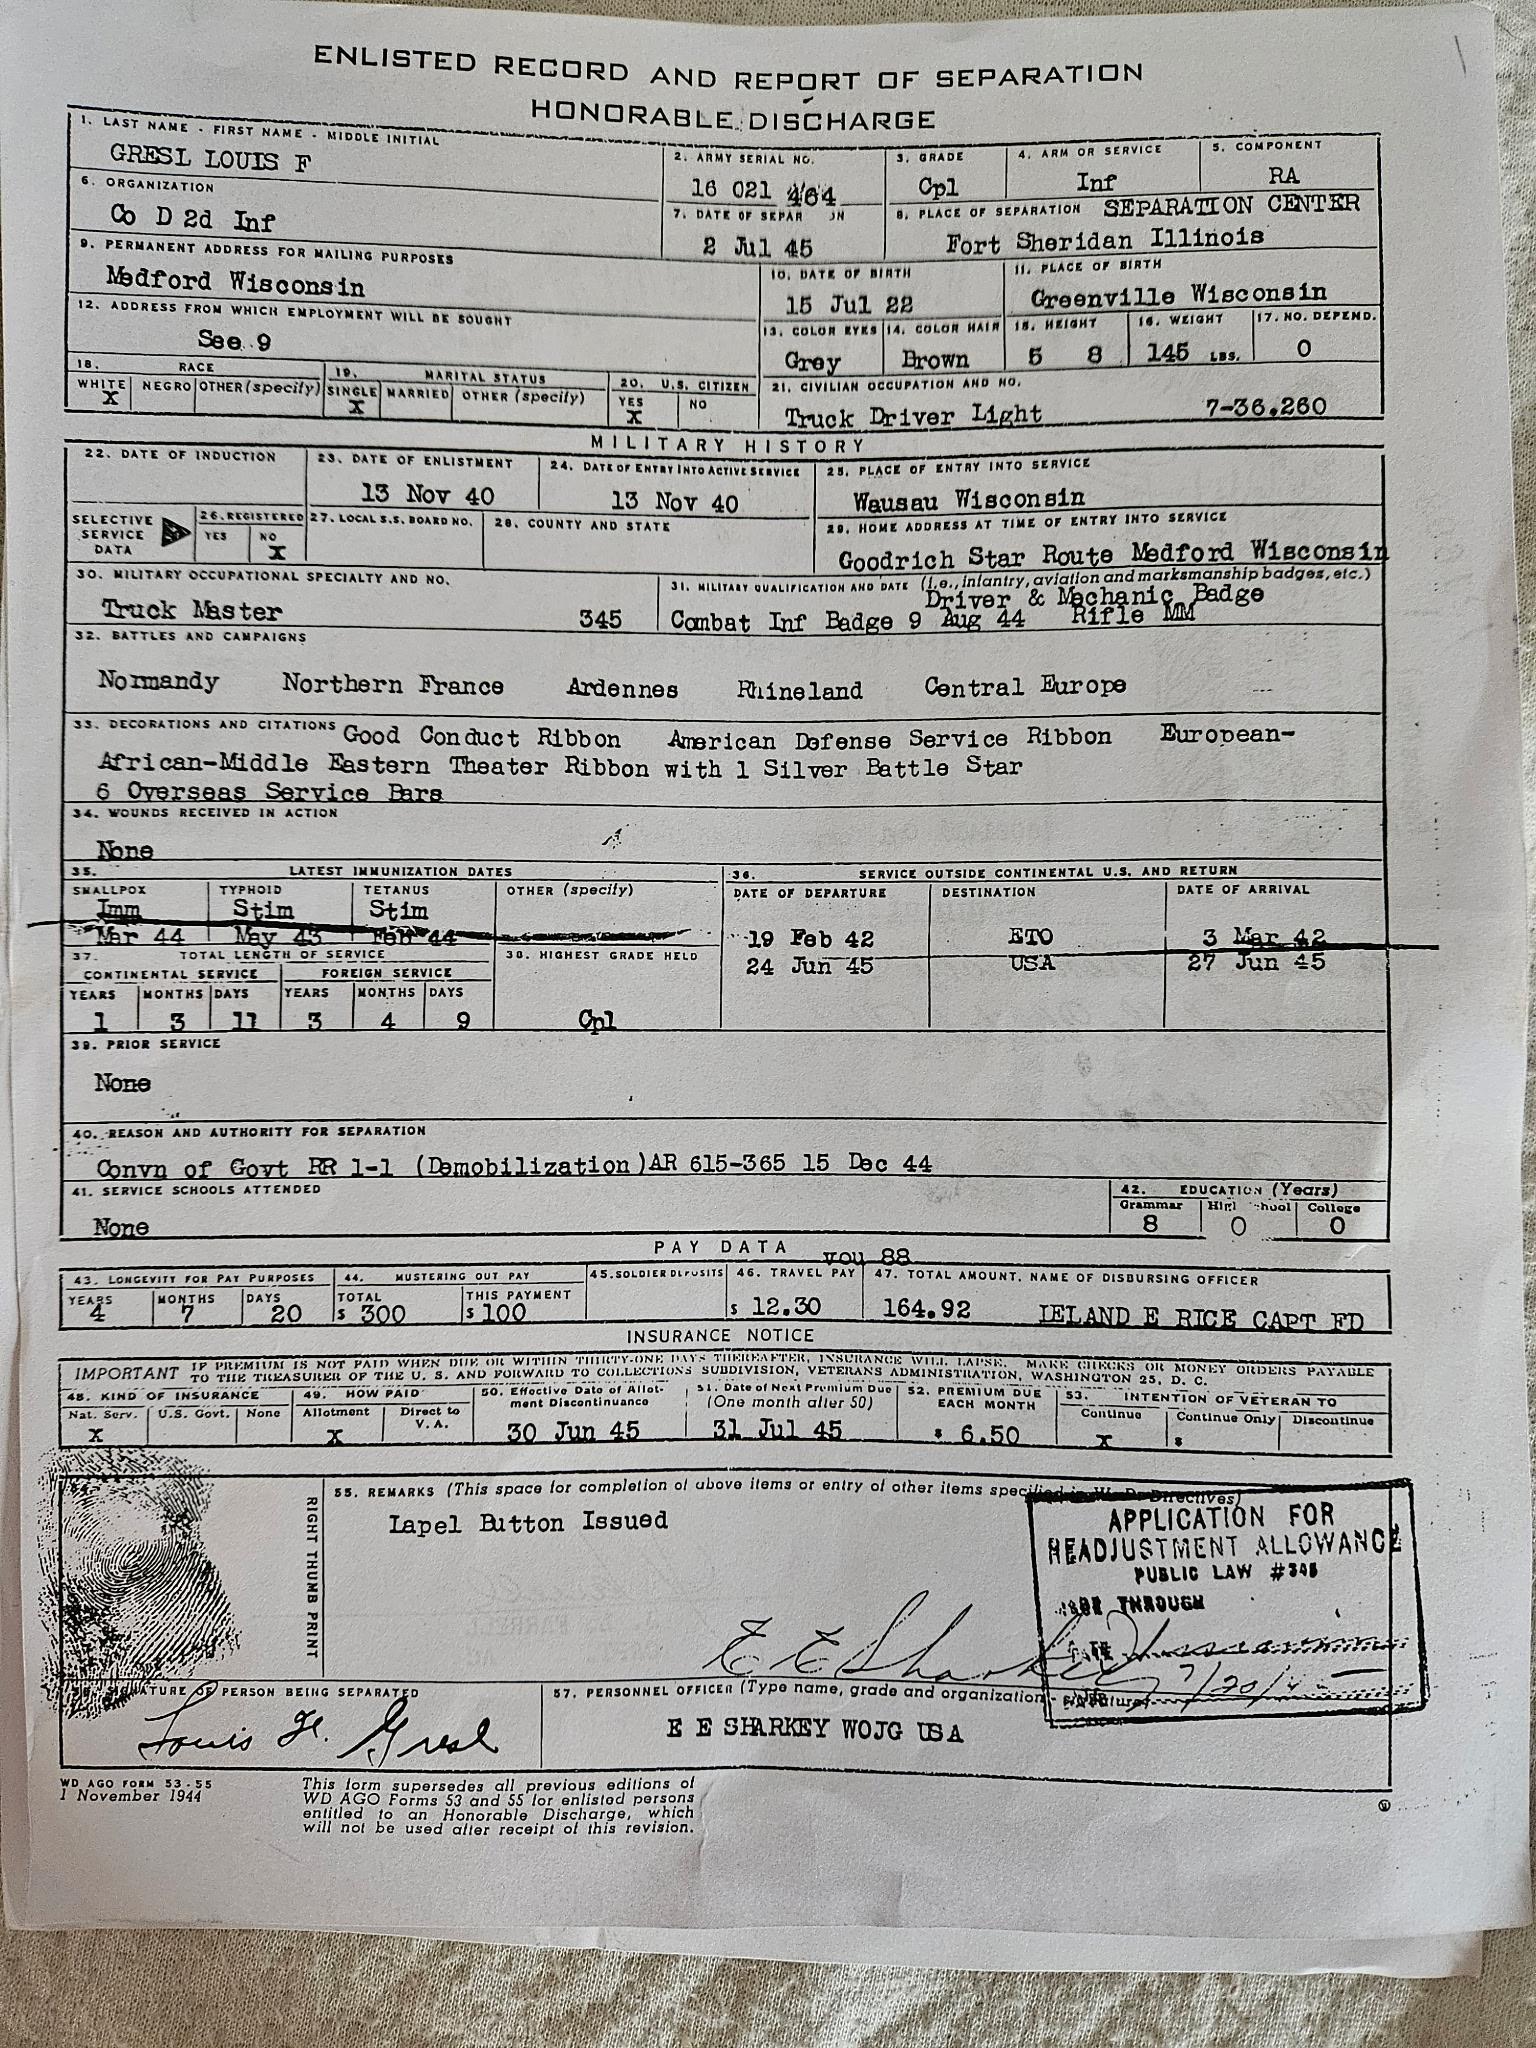 ENLISTED RECORD AND REPORT OF SEPARATION
HONORABLE DISCHARGE
1. LAST NAME - FIRST NAME - MIDDLE INITIAL
GRESL LOUIS F
2. ARMY SERIAL NO.
16 021 464
3. GRADE
Cpl
4. ARM OR SERVICE
Inf
5. COMPONENT
RA
6. ORGANIZATION
Co D 2d Inf
7. DATE OF SEPAR ON
2 Jul 45
8. PLACE OF SEPARATION SEPARATION CENTER
Fort Sheridan Illinois
9. PERMANENT ADDRESS FOR MAILING PURPOSES
Medford Wisconsin
10. DATE OF BIRTH
15 Jul 22
11. PLACE OF BIRTH
Greenville Wisconsin
12. ADDRESS FROM WHICH EMPLOYMENT WILL BE SOUGHT
See 9
13. COLOR EYES
Grey
14. COLOR HAIR
Brown
15. HEIGHT
5 8
16. WEIGHT
145 LBS.
17. NO. DEPEND.
0
18. RACE
WHITE NEGRO OTHER (specify)
X
19. MARITAL STATUS
SINGLE MARRIED OTHER (specify)
X
20. U.S. CITIZEN
YES NO
X
21. CIVILIAN OCCUPATION AND NO.
Truck Driver Light 7-36.260
MILITARY HISTORY
22. DATE OF INDUCTION
23. DATE OF ENLISTMENT
13 Nov 40
24. DATE OF ENTRY INTO ACTIVE SERVICE
13 Nov 40
25. PLACE OF ENTRY INTO SERVICE
Wausau Wisconsin
SELECTIVE SERVICE DATA
26. REGISTERED
YES NO
X
27. LOCAL S.S. BOARD NO.
28. COUNTY AND STATE
29. HOME ADDRESS AT TIME OF ENTRY INTO SERVICE
Goodrich Star Route Medford Wisconsin
30. MILITARY OCCUPATIONAL SPECIALTY AND NO.
Truck Master 345
31. MILITARY QUALIFICATION AND DATE (i.e., infantry, aviation and marksmanship badges, etc.)
Driver & Mechanic Badge
Combat Inf Badge 9 Aug 44 Rifle MM
32. BATTLES AND CAMPAIGNS
Normandy Northern France Ardennes Rhineland Central Europe
33. DECORATIONS AND CITATIONS Good Conduct Ribbon American Defense Service Ribbon European-
African-Middle Eastern Theater Ribbon with 1 Silver Battle Star
6 Overseas Service Bars
34. WOUNDS RECEIVED IN ACTION
None
35. LATEST IMMUNIZATION DATES
SMALLPOX TYPHOID TETANUS OTHER (specify)
Imm Stim Stim
Mar 44 May 43 Feb 44
36. SERVICE OUTSIDE CONTINENTAL U.S. AND RETURN
DATE OF DEPARTURE DESTINATION DATE OF ARRIVAL
19 Feb 42 ETO 3 Mar 42
24 Jun 45 USA 27 Jun 45
37. TOTAL LENGTH OF SERVICE
CONTINENTAL SERVICE FOREIGN SERVICE
YEARS MONTHS DAYS YEARS MONTHS DAYS
1 3 11 3 4 9
38. HIGHEST GRADE HELD
Cpl
39. PRIOR SERVICE
None
40. REASON AND AUTHORITY FOR SEPARATION
Convn of Govt RR 1-1 (Demobilization)AR 615-365 15 Dec 44
41. SERVICE SCHOOLS ATTENDED
None
42. EDUCATION (Years)
Grammar High School College
8 0 0
PAY DATA vou 88
43. LONGEVITY FOR PAY PURPOSES
YEARS MONTHS DAYS
4 7 20
44. MUSTERING OUT PAY
TOTAL THIS PAYMENT
$ 300 $ 100
45. SOLDIER DEPOSITS
46. TRAVEL PAY
$ 12.30
47. TOTAL AMOUNT, NAME OF DISBURSING OFFICER
164.92 LELAND E RICE CAPT FD
INSURANCE NOTICE
IMPORTANT IF PREMIUM IS NOT PAID WHEN DUE OR WITHIN THIRTY-ONE DAYS THEREAFTER, INSURANCE WILL LAPSE. MAKE CHECKS OR MONEY ORDERS PAYABLE
TO THE TREASURER OF THE U. S. AND FORWARD TO COLLECTIONS SUBDIVISION, VETERANS ADMINISTRATION, WASHINGTON 25, D. C.
48. KIND OF INSURANCE
Nat. Serv. U.S. Govt. None
X
49. HOW PAID
Allotment Direct to V.A.
X
50. Effective Date of Allotment Discontinuance
30 Jun 45
51. Date of Next Premium Due (One month after 50)
31 Jul 45
52. PREMIUM DUE EACH MONTH
$ 6.50
53. INTENTION OF VETERAN TO
Continue Continue Only Discontinue
X $
RIGHT THUMB PRINT
55. REMARKS (This space for completion of above items or entry of other items specified in W. D. Directives)
Lapel Button Issued
APPLICATION FOR
READJUSTMENT ALLOWANCE
PUBLIC LAW #346
THROUGH
DATE
7/20/
E E Sharkey
56. SIGNATURE OF PERSON BEING SEPARATED
Louis F. Gresl
57. PERSONNEL OFFICER (Type name, grade and organization - signature)
E E SHARKEY WOJG USA
WD AGO FORM 53-55
1 November 1944
This form supersedes all previous editions of
WD AGO Forms 53 and 55 for enlisted persons
entitled to an Honorable Discharge, which
will not be used after receipt of this revision.